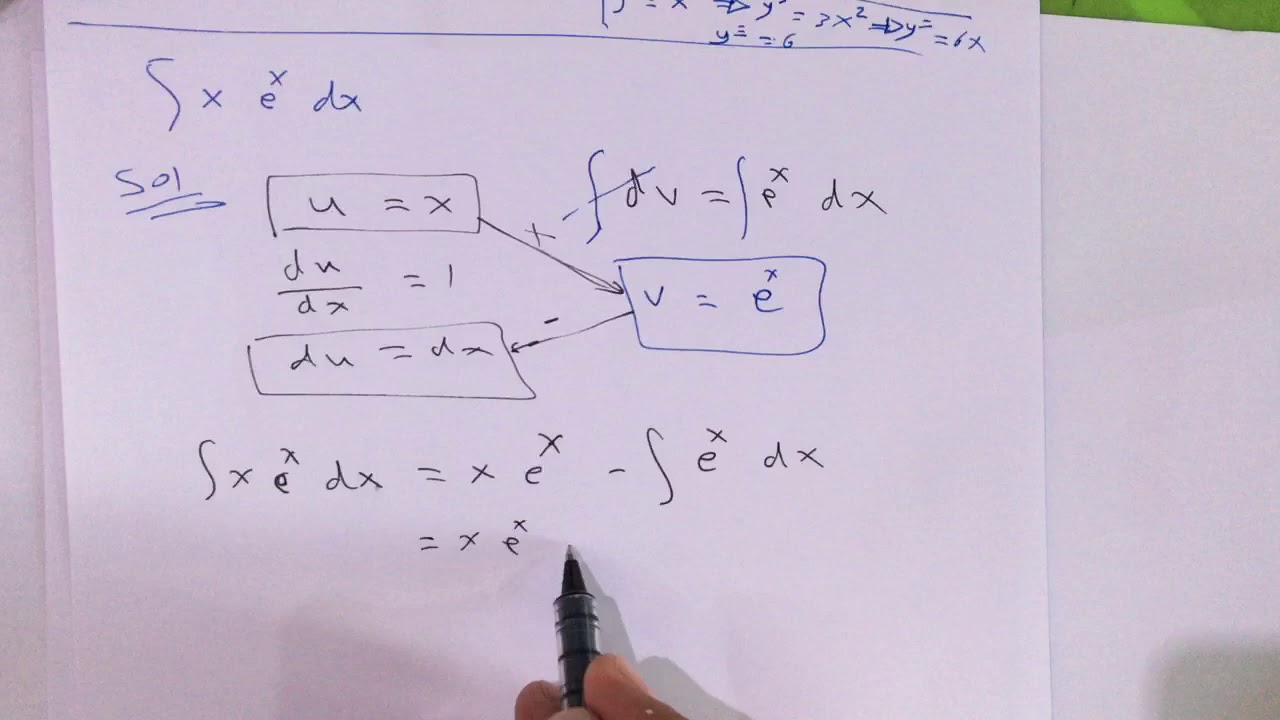 y = x ⇒ y' = 3x² ⇒ y'' = 6x
y''' = 6
∫ x eˣ dx
Sol
u = x
∫ dv = ∫ eˣ dx
+
du/dx = 1
v = eˣ
-
du = dx
∫ x eˣ dx = x eˣ - ∫ eˣ dx
= x eˣ